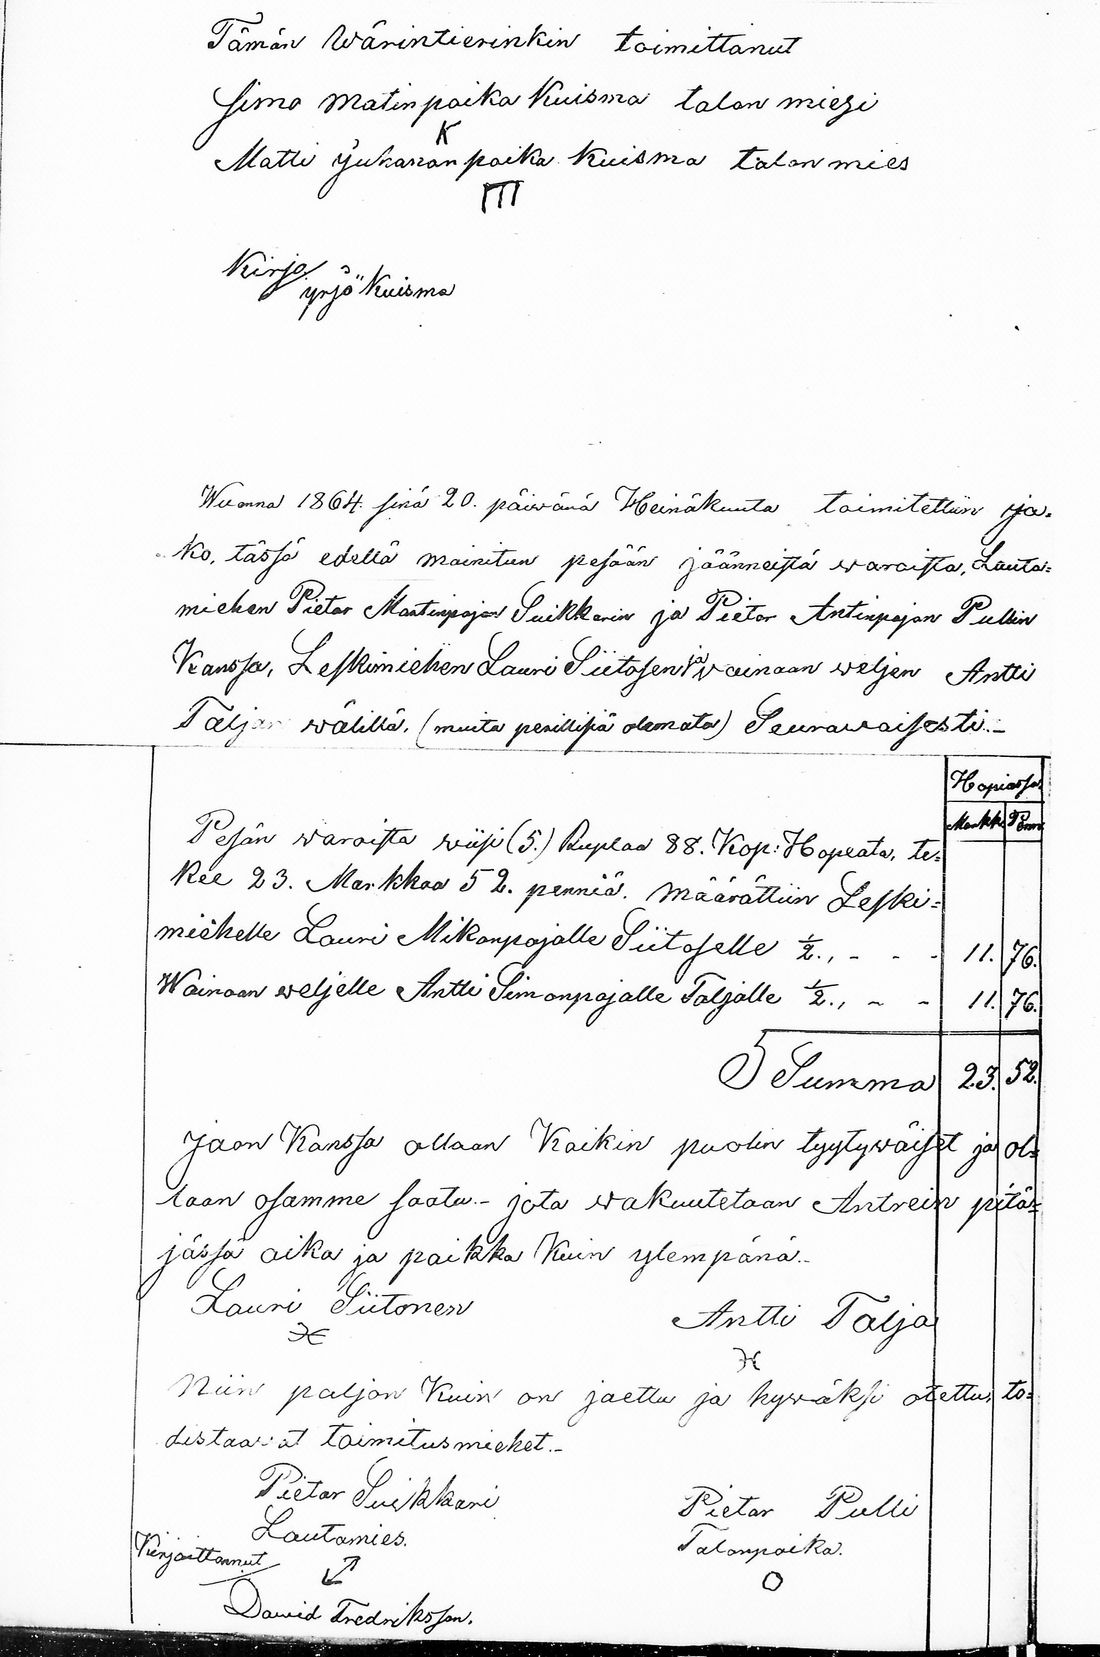 Tämän wärintierinkin toimittanut
Simo Matinpoika Kuisma talon miesi
K
Matti Jukananpoika Kuisma talon mies
m
Kirjo
yrjö Kuisma
Wuonna 1864. sinä 20. päiwänä Heinäkuuta toimitettiin ja=
ko, tässä edellä mainitun pesään jäänneistä waroista, Lauta=
miehen Pietar Martinpojan Suikkarin ja Pietar Antinpojan Pullin
Kanssa, Leskimiehen Lauri Siitosen ja wainaan weljen Antti
Taljan wälillä. (muita perillisiä olemata) Seurawaisesti.-
Hopiassa
Markk. Penni
Pesän waroista wiisi (5.) Ruplaa 88. Kop: Hopeata, te=
kee 23. Markkaa 52. penniä. määrättiin Leski=
miehelle Lauri Mikonpojalle Siitoselle ½., - - - 11. 76.
Wainaan weljelle Antti Simonpojalle Taljalle ½., - - 11. 76.
Summa 23. 52.
Jaon Kanssa ollaan Kaikin puolin tyytywäiset ja ol=
laan osamme saatu.- jota wakuutetaan Antrein pitä=
jässä aika ja paikka Kuin ylempänä.-
Lauri Siitonen Antti Talja
Niin paljon Kuin on jaettu ja hywäksi otettu, to=
distaawat toimitusmiehet.-
Pietar Suikkari Pietar Pulli
Lautamies. Talonpoika.
Kirjoittannut
Dawid Fredriksson.